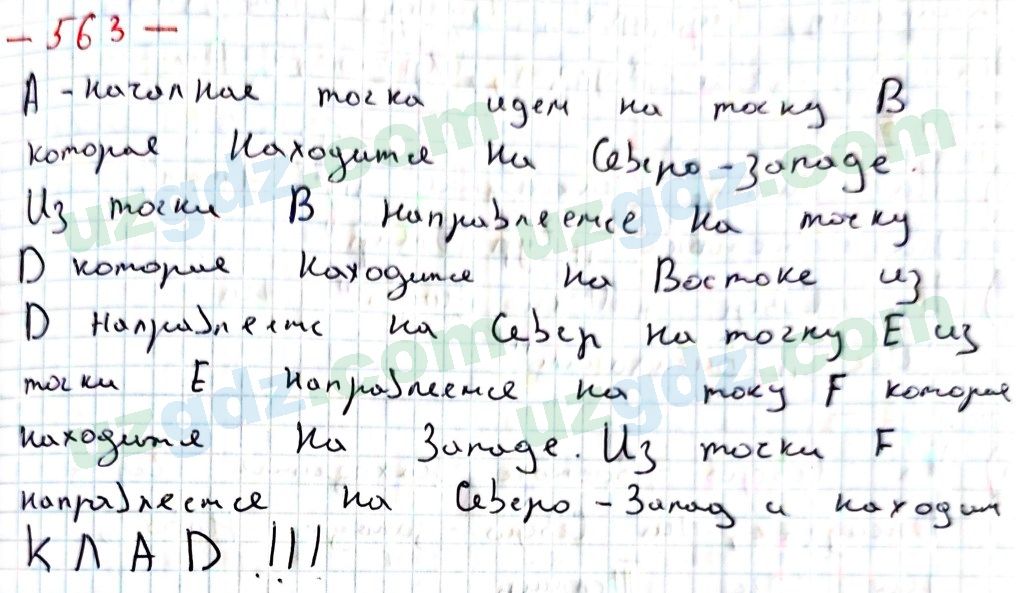 - 563 -
А - началная точка идем на точку B
которая находится на Северо-Западе.
Из точки B направляемся на точку
D которая находится на Востоке из
D направляемс на Север на точку E из
точки E направляемся на току F которая
находится на Западе. Из точки F
направляемся на Северо-Запад и находим
К Л А D !!!
uzgdz.com
uzgdz.com
uzgdz.com
uzgdz.com